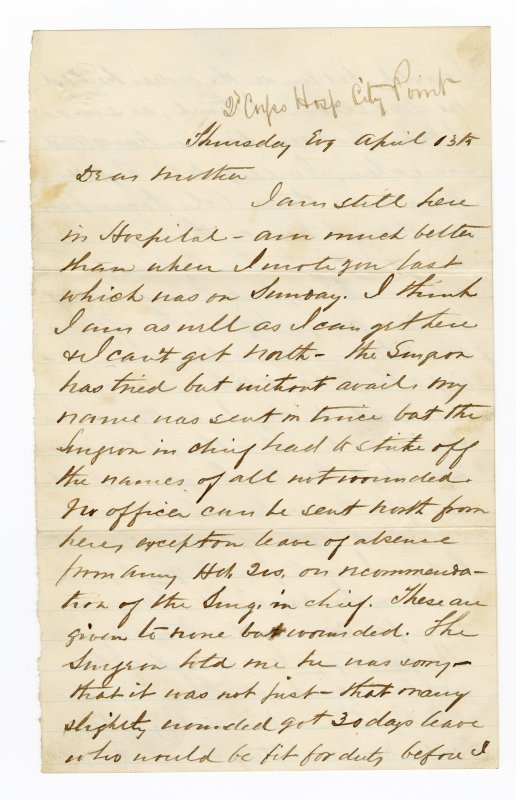 2d Corps Hosp City Point
Thursday Evg April 13th
Dear Mother
I am still here
in Hospital - am much better
than when I wrote you last
which was on Sunday. I think
I am as well as I can get here
& I can't get North - the Surgeon
has tried but without avail. my
name was sent in twice but the
Surgeon in chief had to strike off
the names of all not wounded.
No officer can be sent North from
here, except on leave of absence
from Army Hd. Qrs. on recommenda-
tion of the Surg. in chief. These are
given to none but wounded. The
Surgeon told me he was sorry -
that it was not just - that many
slightly wounded got 30 days leave
who would be fit for duty before I